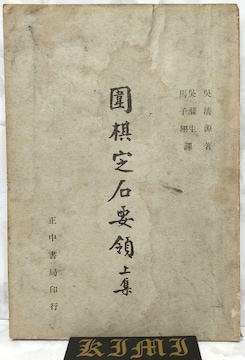 吳清源著
吳蘇生
馬子翔譯
圍棋定石要領上集
正中書局印行
KIMI